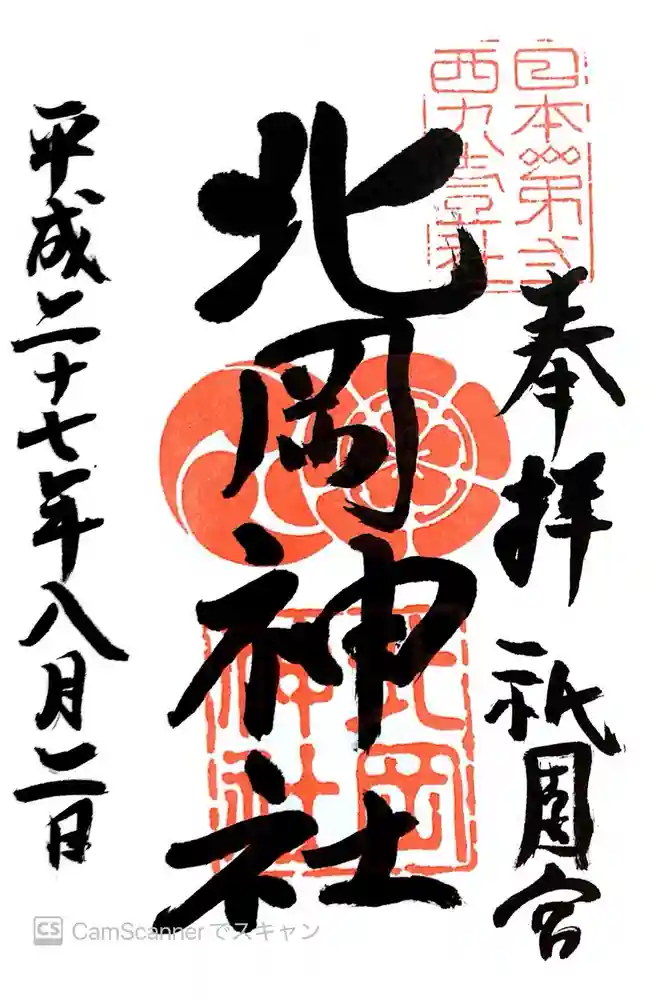 日本第二
西九壹社
奉拝 祇園宮
北岡神社
北岡
神社
平成二十七年八月二日
CS CamScannerでスキャン